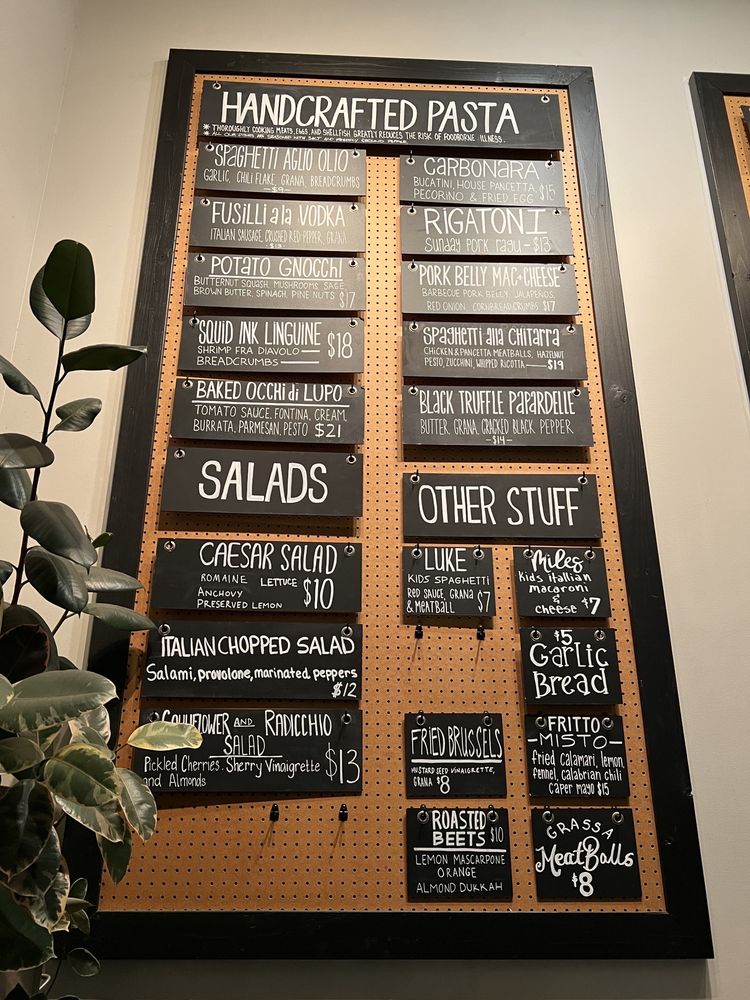 HANDCRAFTED PASTA
* THOROUGHLY COOKING MEATS, EGGS, AND SHELLFISH GREATLY REDUCES THE RISK OF FOODBORNE ILLNESS.
* ALL OUR DISHES ARE SEASONED WITH SALT AND FRESHLY GROUND PEPPER
SPAGHETTI AGLIO OLIO
GARLIC, CHILI FLAKE, GRANA, BREADCRUMBS
-$9-
FUSILLI a la VODKA
ITALIAN SAUSAGE, CRUSHED RED PEPPER, GRANA
POTATO GNOCCHI
BUTTERNUT SQUASH, MUSHROOMS, SAGE
BROWN BUTTER, SPINACH, PINE NUTS $17
SQUID INK LINGUINE $18
SHRIMP FRA DIAVOLO
BREADCRUMBS
BAKED OCCHI di LUPO
TOMATO SAUCE, FONTINA, CREAM,
BURRATA, PARMESAN, PESTO $21
CARBONARA
BUCATINI, HOUSE PANCETTA, $15
PECORINO & FRIED EGG
RIGATONI
Sunday pork ragu - $13
PORK BELLY MAC+CHEESE
BARBECUE PORK BELLY, JALAPEÑOS,
RED ONION, CORNBREAD CRUMBS $17
Spaghetti alla CHITARRA
CHICKEN & PANCETTA MEATBALLS, HAZELNUT
PESTO, ZUCCHINI, WHIPPED RICOTTA — $19
BLACK TRUFFLE PAPARDELLE
BUTTER, GRANA, CRACKED BLACK PEPPER
-$14-
SALADS
CAESAR SALAD
ROMAINE LETTUCE $10
ANCHOVY
PRESERVED LEMON
ITALIAN CHOPPED SALAD
Salami, provolone, marinated peppers
$12
CAULIFLOWER AND RADICCHIO
SALAD
Pickled Cherries, Sherry Vinaigrette $13
and Almonds
OTHER STUFF
LUKE
KIDS SPAGHETTI
RED SAUCE, GRANA
& MEATBALL $7
Miles
kids italian
macaroni
&
cheese $7
$5
Garlic
Bread
FRIED BRUSSELS
MUSTARD SEED VINAIGRETTE,
GRANA $8
FRITTO
-MISTO-
fried calamari, lemon,
fennel, calabrian chili
caper mayo $15
ROASTED
BEETS $10
LEMON MASCARPONE
ORANGE
ALMOND DUKKAH
GRASSA
MeatBalls
$8